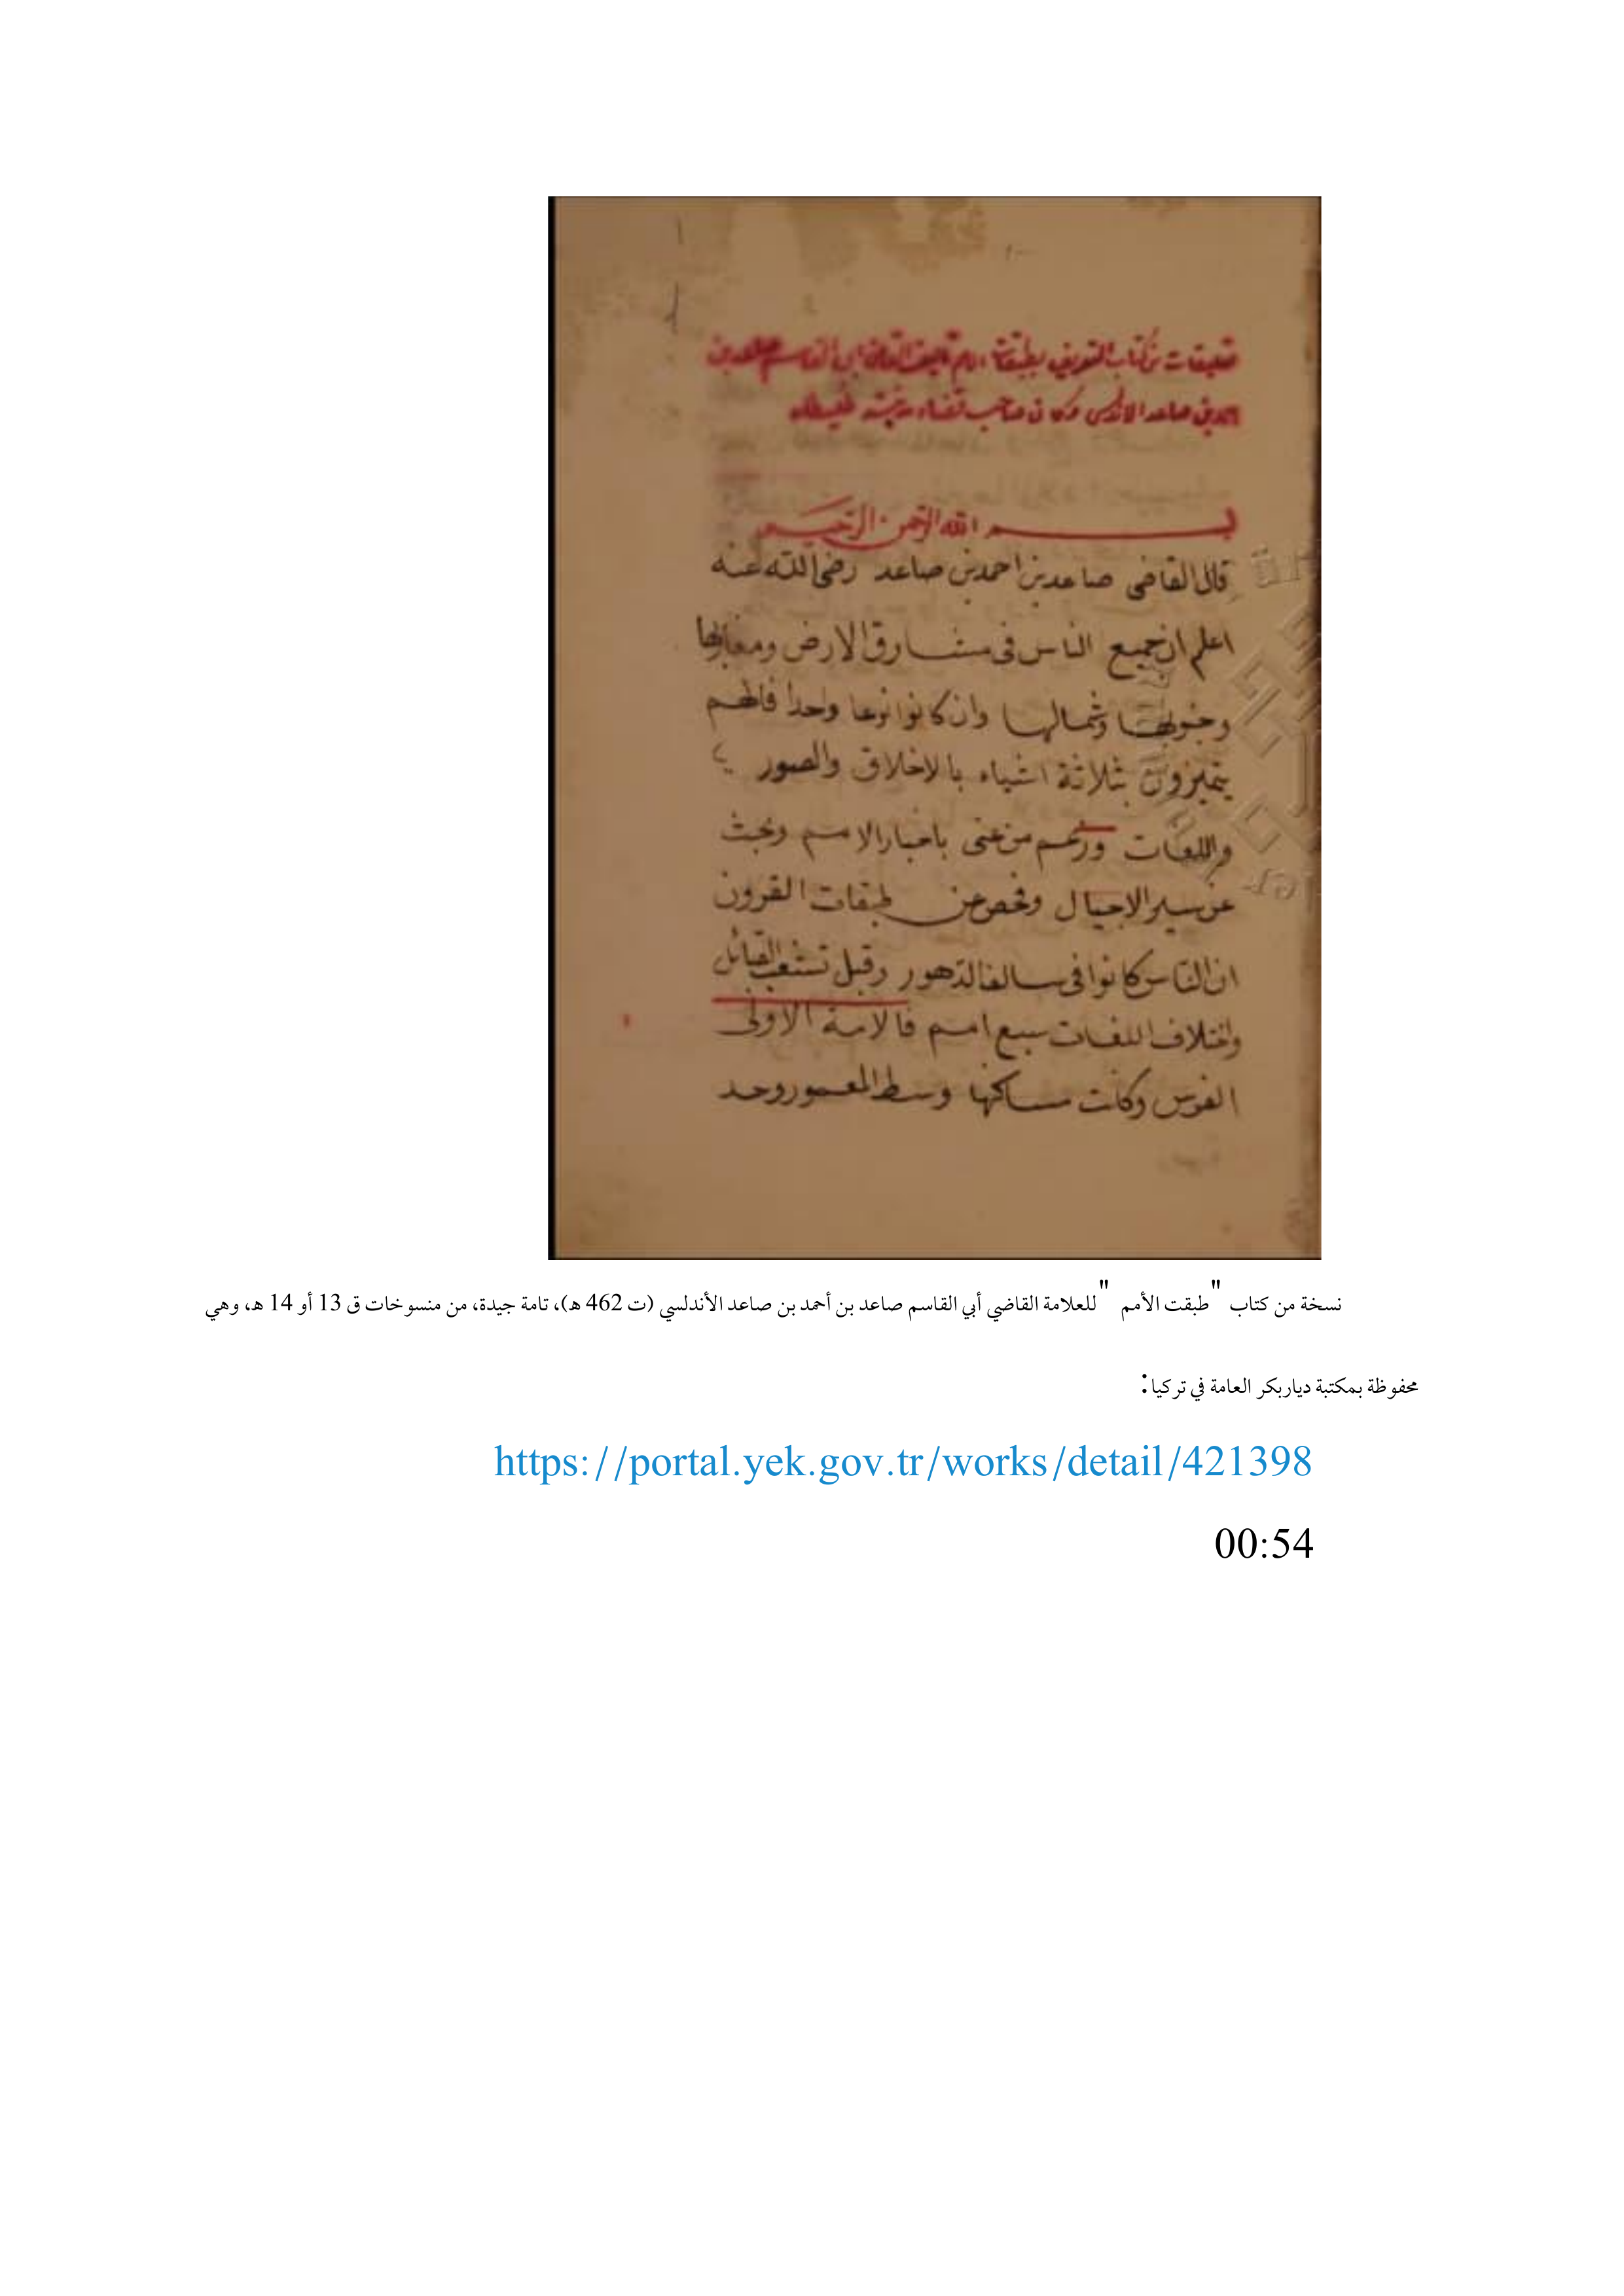 تعليقات من كتاب التعريف بطبقات الامم تاليف القاضي ابي القاسم صاعد بن
احمد بن صاعد الاندلسي وكان صاحب قضاء مدينة طليطله
بسم الله الرحمن الرحيم
قال القاضى صاعد بن احمد بن صاعد رضى الله عنه
اعلم ان جميع الناس فى مشارق الارض ومغاربها
وجنوبها وشمالها وان كانوا نوعا واحدا فانهم
يتميزون بثلاثة اشياء بالاخلاق والصور
واللغات وزعم من عنى باخبار الامم وبحث
عن سير الاجيال وفحص عن طبقات القرون
ان الناس كانوا فى سالف الدهور وقبل تشعب القبائل
واختلاف اللغات سبع امم فالامة الاولى
الفرس وكانت مساكنها وسط المعمور وحد
نسخة من كتاب "طبقت الأمم" للعلامة القاضي أبي القاسم صاعد بن أحمد بن صاعد الأندلسي (ت 462 هـ)، تامة جيدة، من منسوخات ق 13 أو 14 هـ، وهي
محفوظة بمكتبة دياربكر العامة في تركيا:
https://portal.yek.gov.tr/works/detail/421398
00:54